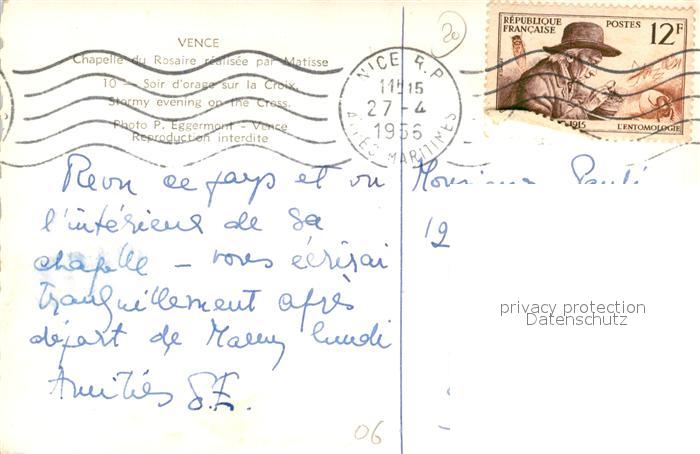 VENCE
Chapelle du Rosaire réalisée par Matisse
10 — Soir d'orage sur la Croix.
Stormy evening on the Cross.
Photo P. Eggermont - Vence
Reproduction interdite
20
NICE R.P
11H15
27 - 4
1956
ALPES MARITIMES
RÉPUBLIQUE FRANÇAISE
POSTES
12F
1915
L'ENTOMOLOGIE
Revu ce pays et vu
l'intérieur de sa
chapelle — vous écrirai
tranquillement après
départ de Mamy lundi
Amitiés S.E.
06
Monsieur
12
privacy protection
Datenschutz